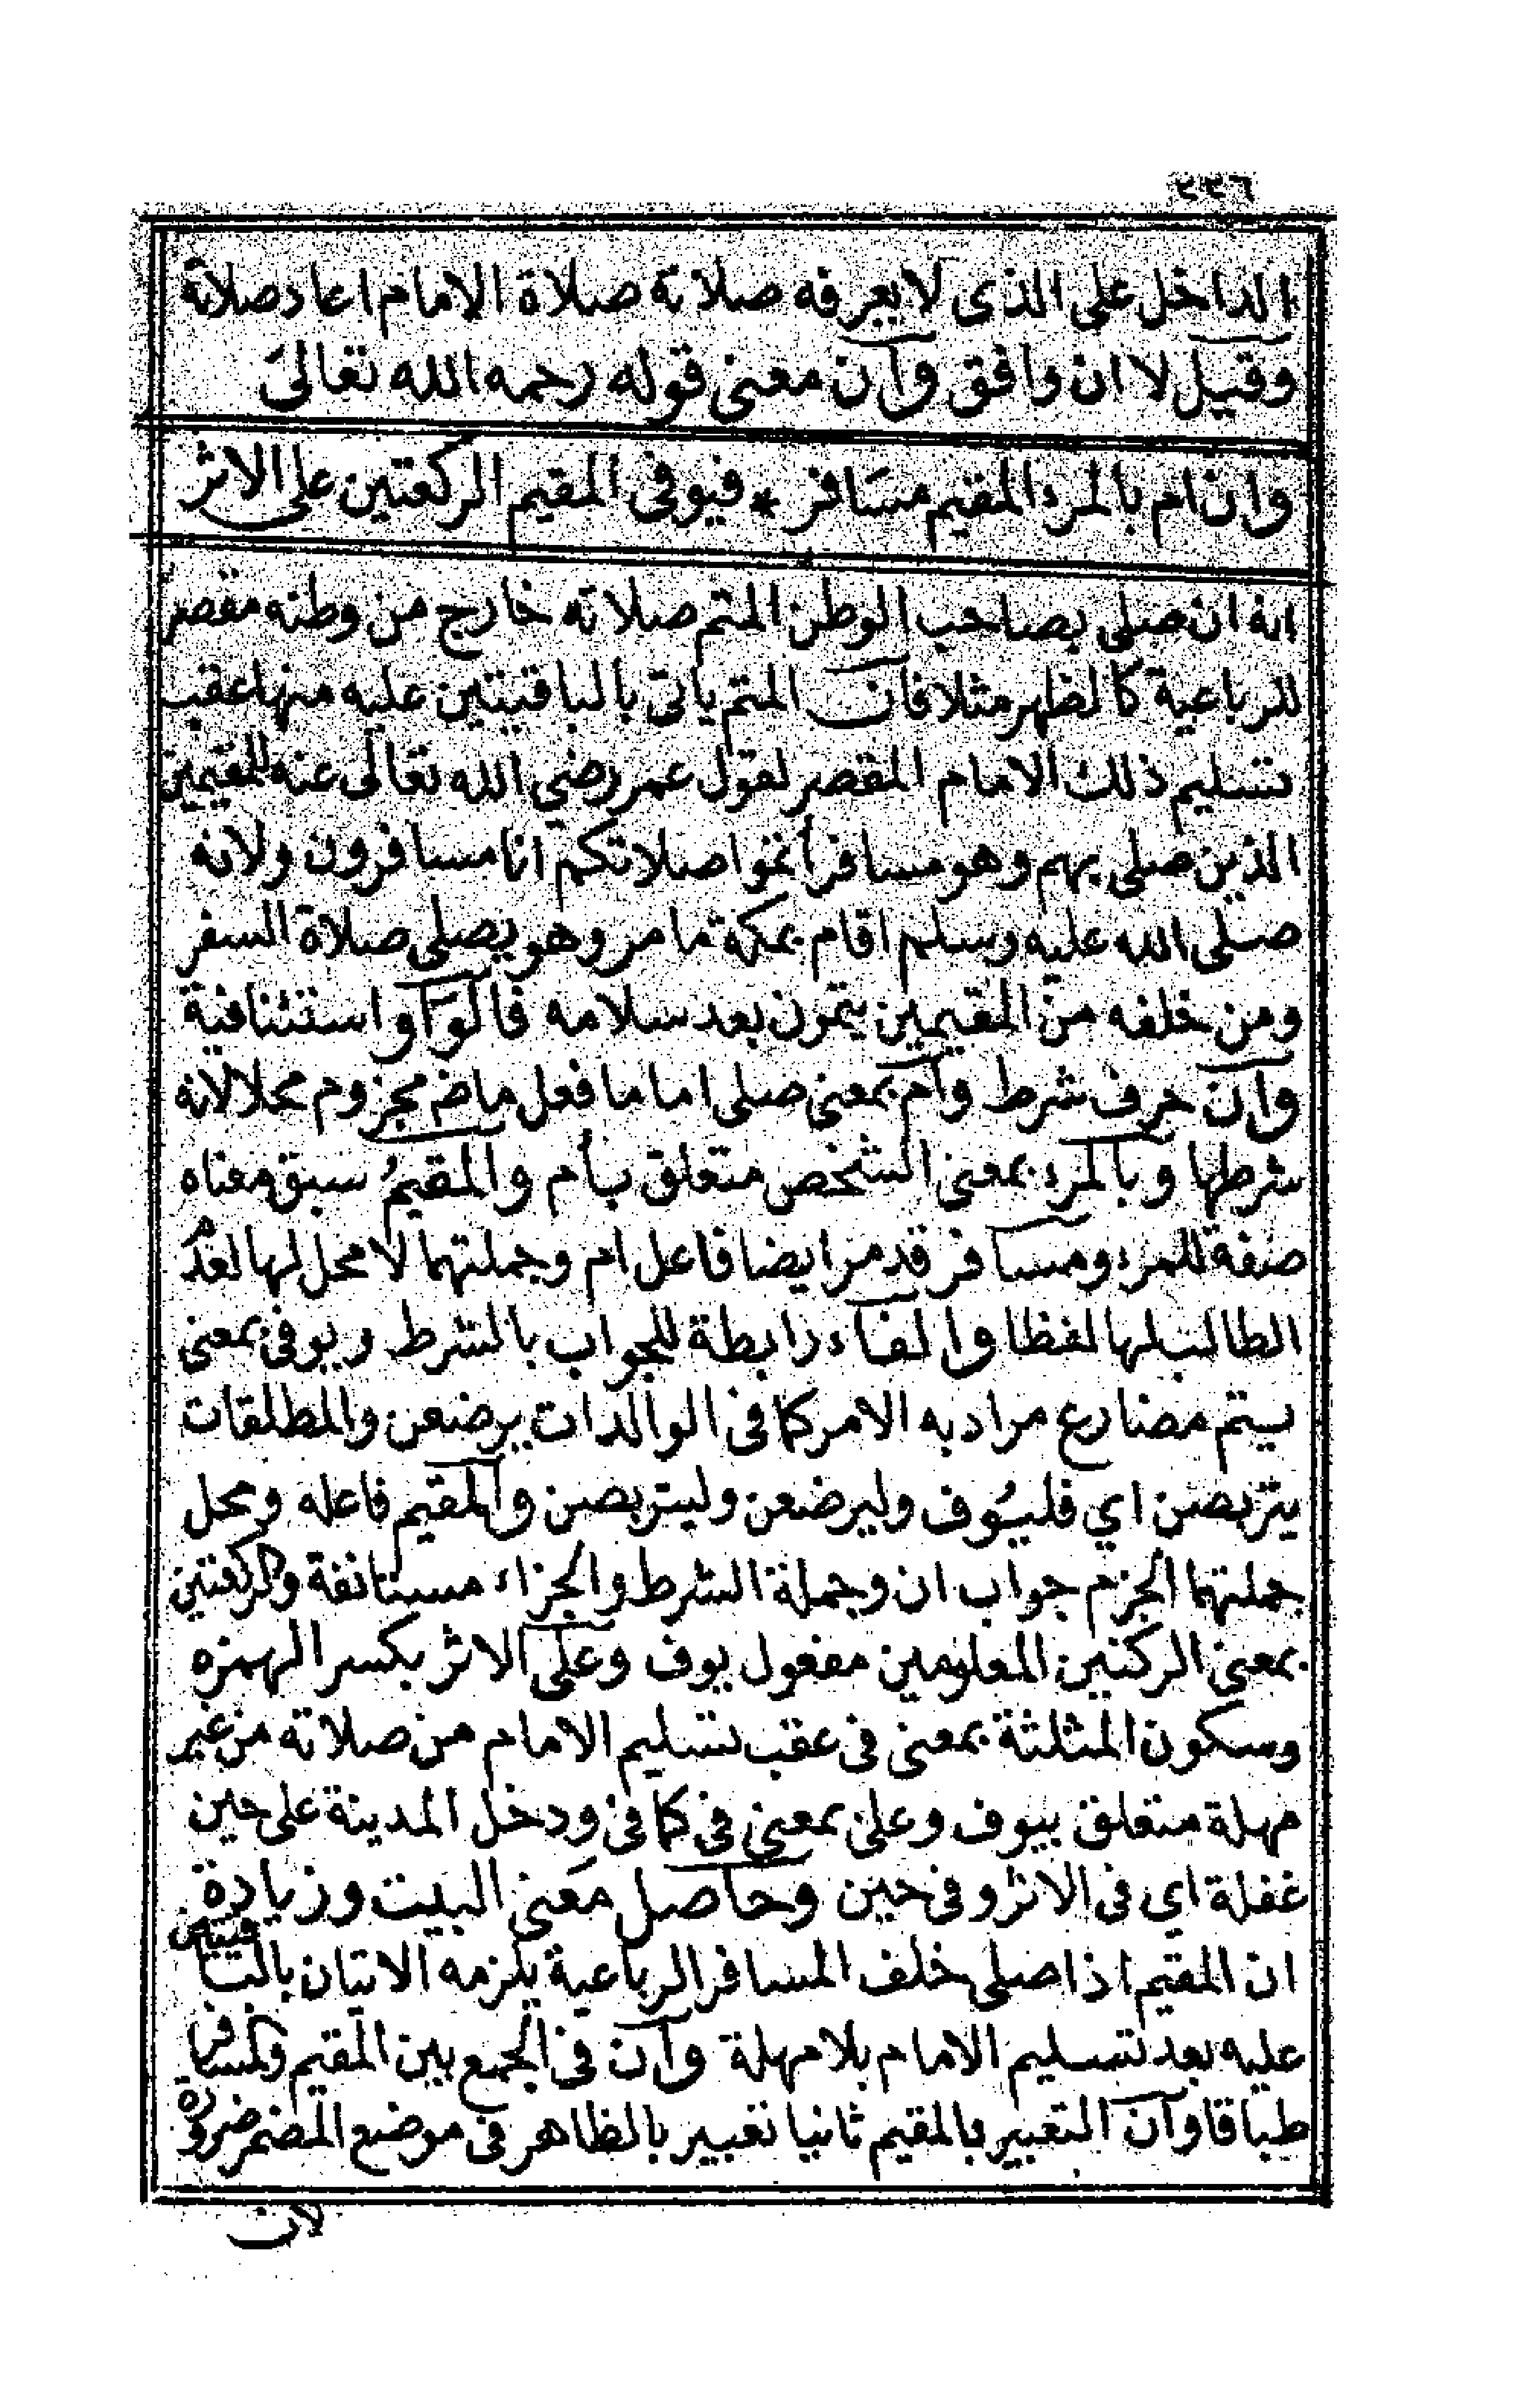 ٢٣٦
الداخل على الذي لا يعرفه صلاته صلاة الامام اعاد صلاته
وقيل لا ان وافق وان معنى قوله رحمه الله تعالى
وان ام بالمرء المقيم مسافر * فيوفى المقيم الركعتين على الاثر
انه ان صلى بصاحب الوطن المتم صلاته خارج من وطنه مقصر
للرباعية كالظهر مثلا فان المتم ياتى بالباقيتين عليه منها عقب
تسليم ذلك الامام المقصر لقول عمر رضي الله تعالى عنه للمقيمين
الذين صلى بهم وهو مسافر أتموا صلاتكم انا مسافرون ولانه
صلى الله عليه وسلم اقام بمكة ما مر وهو يصلى صلاة السفر
ومن خلفه من المقيمين يتمون بعد سلامه فالواو استئنافية
وان حرف شرط وام بمعنى صلى اماما فعل ماض مجزوم محلا لانه
شرطها وبالمرء بمعنى الشخص متعلق بأم والمقيمُ سبق معناه
صفة للمرء ومسافر قد مر ايضا فاعل ام وجملتهما لا محل لها لعدم
الطالب لها لفظا والفاء رابطة للجواب بالشرط ويوفى بمعنى
يتم مضارع مراد به الامر كما فى الوالدات يرضعن والمطلقات
يتربصن اي فليُوف وليرضعن وليتربصن والمقيم فاعله ومحل
جملتهما الجزم جواب ان وجملة الشرط والجزاء مستانفة والركعتين
بمعنى الركنين المعلومين مفعول يوف وعلى الاثر بكسر الهمزه
وسكون المثلثة بمعنى فى عقب تسليم الامام من صلاته من غير
مهلة متعلق بيوف وعلى بمعنى فى كما فى ودخل المدينة على حين
غفلة اي فى الاثر وفى حين وحاصل معنى البيت وزيادة
ان المقيم اذا صلى خلف المسافر الرباعية يلزمه الاتيان بالباقيتين
عليه بعد تسليم الامام بلا مهلة وان فى الجمع بين المقيم والمسافر
طباقا وان التعبير بالمقيم ثانيا تعبير بالظاهر فى موضع المضمر ضرورة
لان